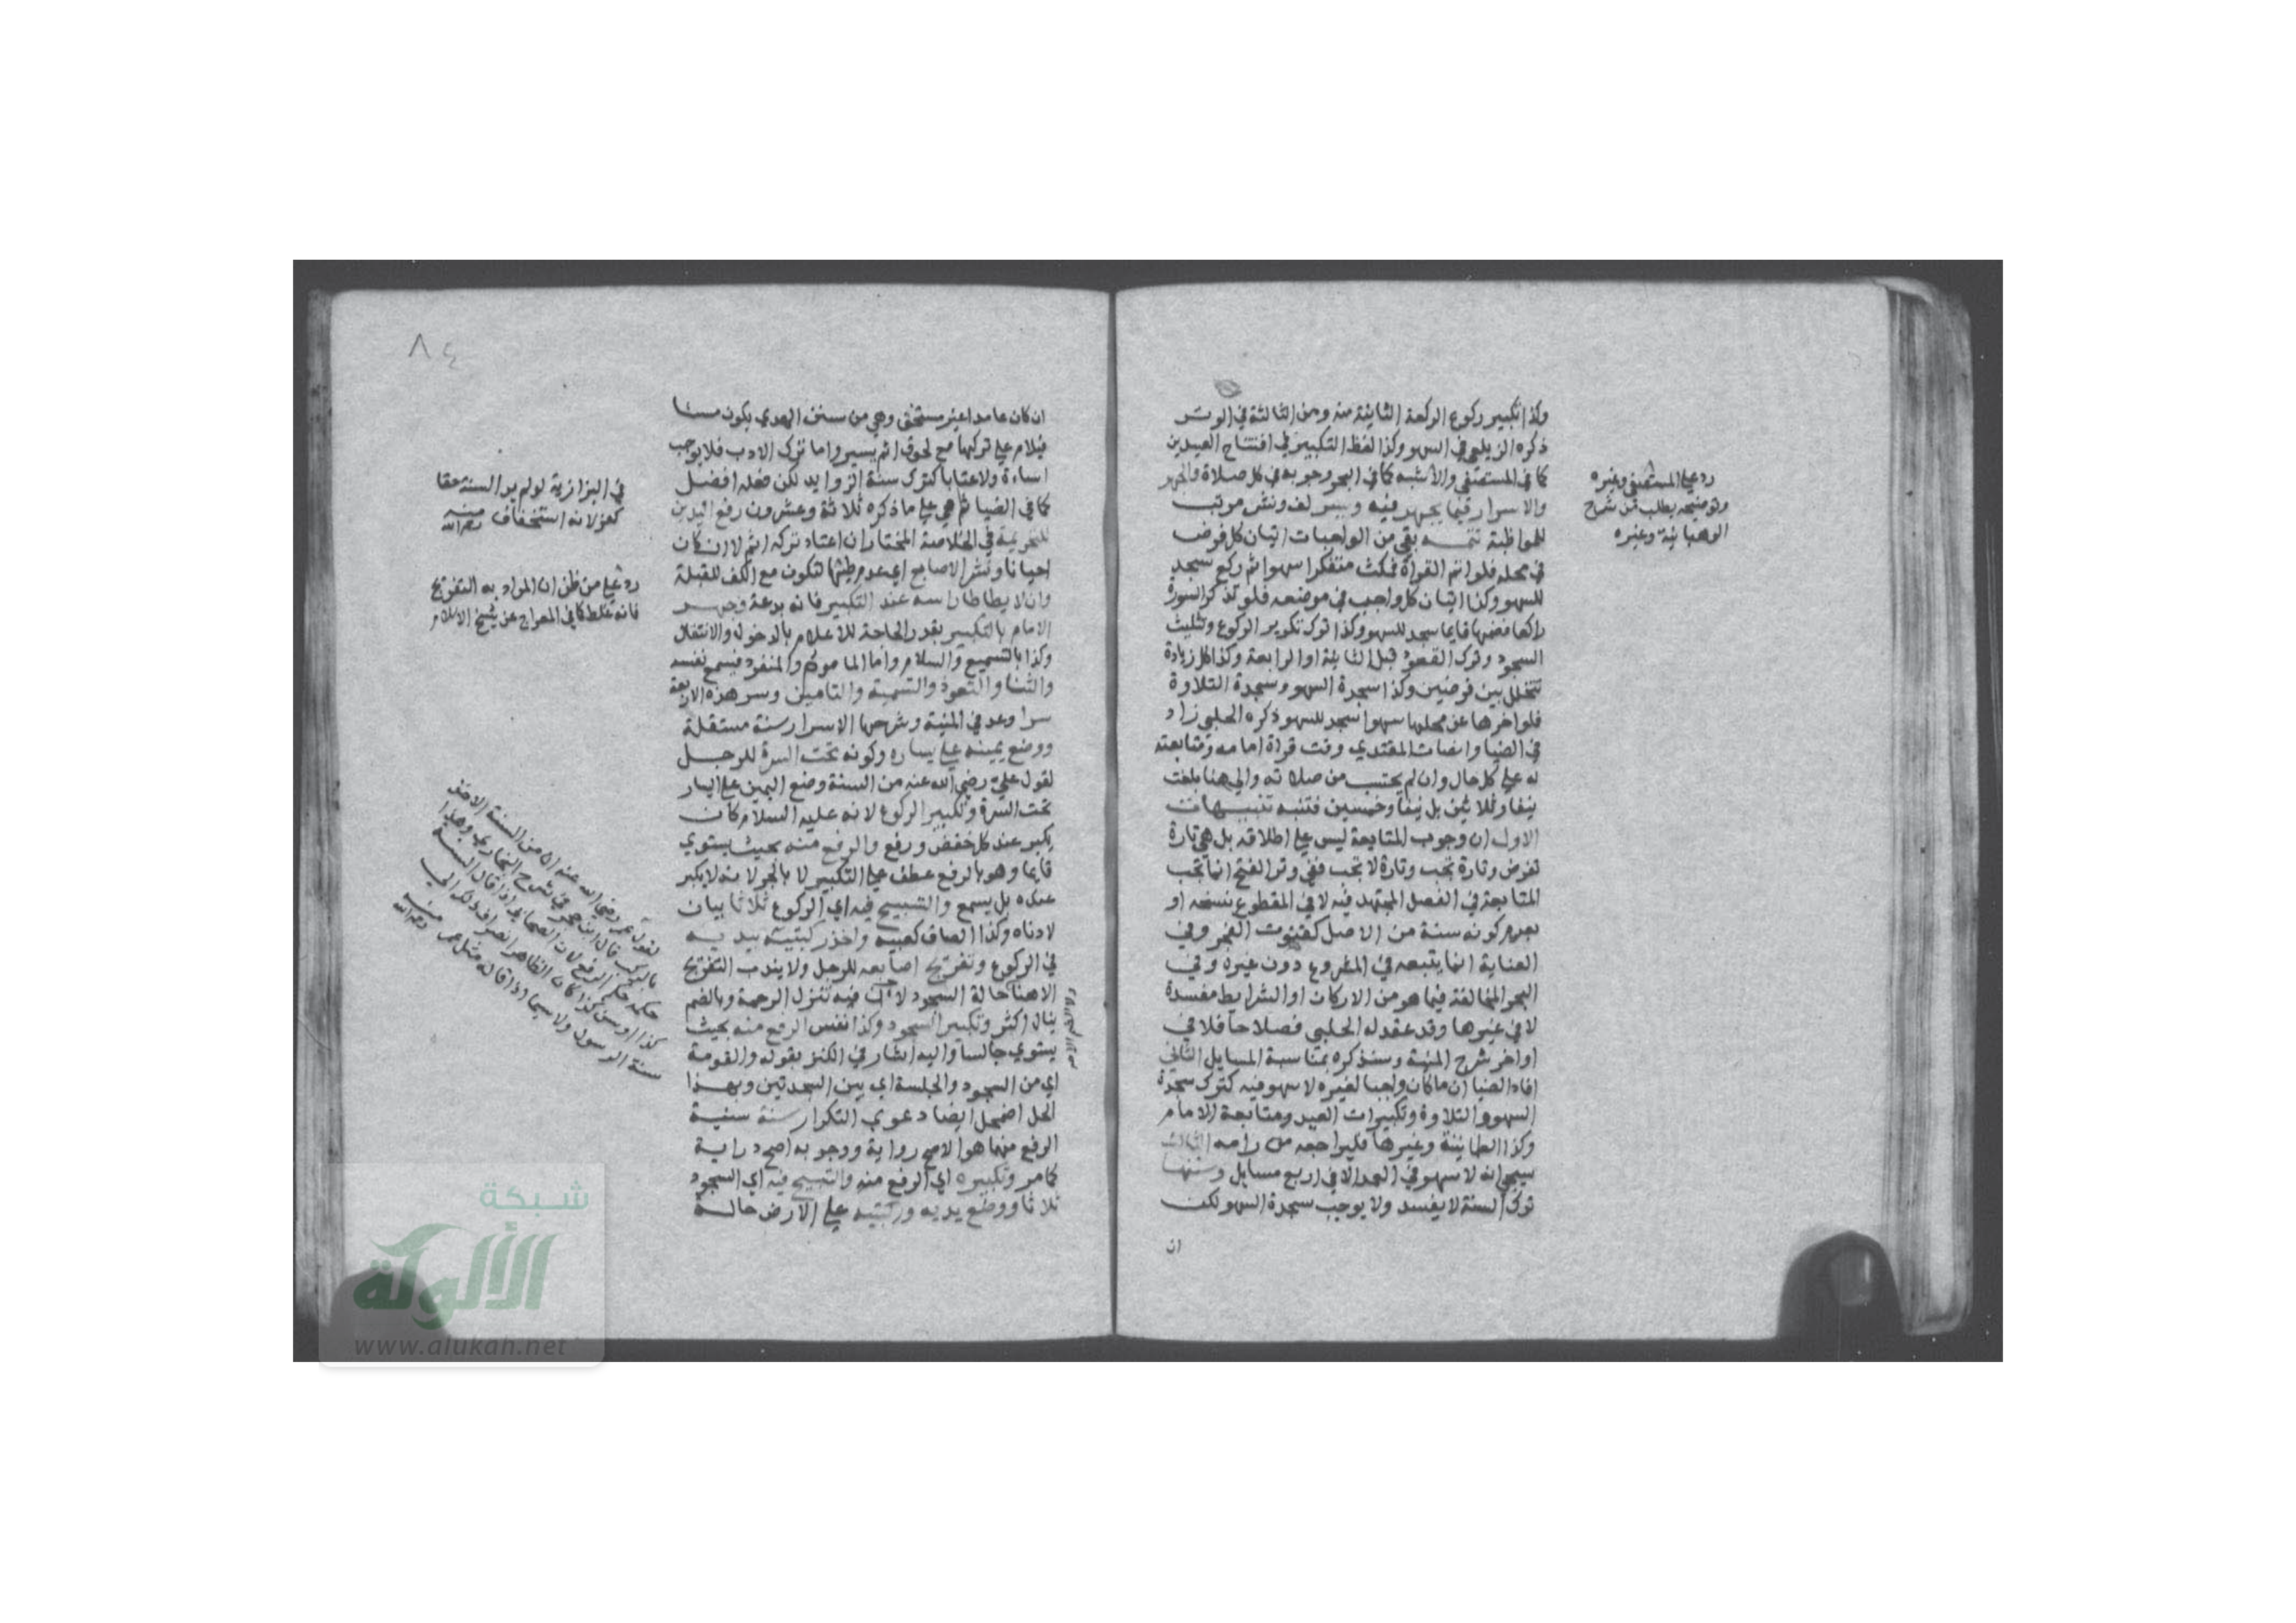 وكذا تكبير ركوع الركعة الثانية منه ومن الثالثة في الوتر
ذكره الزيلعي في السهو وكذا لفظ التكبير في افتتاح العيدين
كما في المستصفى والاشبه كما في البحر وجوبه في كل صلاة والجهر
والاسرار فيما يجهر فيه ويسر لف ونشر مرتب
للمواظبة تتمه بقي من الواجبات اتيان كل فرض
في محله فلو اتم القراة فمكث متفكرا سهوا ثم ركع سجد
للسهو وكذا اتيان كل واجب في موضعه فلو تذكر السورة
راكعا فضمها قايما سجد للسهو وكذا ترك تكرير الركوع وتثليث
السجود وترك القعود قبل الثانية او الرابعة وكذا كل زيادة
تتخلل بين فرضين وكذا سجدة السهو وسجدة التلاوة
فلو اخرها عن محلها سهوا سجد للسهو ذكره الحلبي زاد
في الضيا وانصات المقتدي وقت قراة امامه ومتابعته
له علي كل حال وان لم يحتسب من صلاته والي هنا بلغت
نيفا وثلاثين بل نيفا وخمسين فتنبه تنبيهات
الاول ان وجوب المتابعة ليس علي اطلاقه بل هي تارة
تفرض وتارة تجب وتارة لا تجب ففي وتر الفتح انما تجب
المتابعة في الفصل المجتهد فيه لا في المقطوع بنسخه او
بعدم كونه سنة من الاصل كقنوت الفجر وفي
العناية انما يتبعه في المشروع دون غيره وفي
البحر المخالفة فيما هو من الاركان او الشرايط مفسدة
لا في غيرها وقد عقد له الحلبي فصلا حافلا في
اواخر شرح المنية وسنذكره بمناسبة المسايل الثاني
افاد الضيا ان ما كان واجبا لغيره لا سهو فيه كترك سجدة
السهو والتلاوة وتكبيرات العيد ومتابعة الامام
وكذا الطمانينة وغيرها فليراجعه من رامه الثالث
سيجي انه لا سهو في العمد الا في اربع مسايل وسننها
ترك السنة لا يفسد ولا يوجب سجدة السهو لكن
ان
رد علي المستصفى وغيره
وتوضيحه يطلب من شرح
الوهبانية وغيره
٨٤
ان كان عامدا غير مستخف وهي من سنن الهدي يكون مسئا
فيلام علي تركها مع لحوق اثم يسير واما ترك الادب فلا يوجب
اساءة ولا عتابا كترك سنة الزوايد لكن فعله افضل
كما في الضيا ثم هي علي ما ذكره ثلاثة وعشرون رفع اليدين
للتحريمة في الخلاصة المختار ان اعتاد تركه اثم لا ان كان
احيانا ونشر الاصابع اي عدم طيها لتكون مع الكف للقبلة
وان لا يطاطا راسه عند التكبير فانه بدعة وجهر
الامام بالتكبير بقدر الحاجة للاعلام بالدخول والانتقال
وكذا بالتسميع والسلام واما الماموم والمنفرد فيسمع نفسه
والثنا والتعوذ والتسمية والتامين وسر هذه الاربعة
سرا وعد في المنية وشرحها الاسرار سنة مستقلة
ووضع يمينه علي يساره وكونه تحت السرة للرجل
لقول علي رضي الله عنه من السنة وضع اليمين علي اليسار
تحت السرة وتكبير الركوع لانه عليه السلام كان
يكبر عند كل خفض ورفع والرفع منه بحيث يستوي
قايما وهو بالرفع عطف علي التكبير لا بالجر لانه لا يكبر
عنده بل يسمع والتسبيح فيه اي الركوع ثلاثا بيان
لادناه وكذا الصاق كعبيه واخذ ركبتيه بيديه
في الركوع وتفريج اصابعه للرجل ولا يندب التفريج
الا هنا حالة السجود لان فيه تنزل الرحمة وبالضم
ينال اكثر وتكبير السجود وكذا نفس الرفع منه بحيث
يستوي جالسا واليه اشار في الكنز بقوله والقومة
اي من السجود والجلسة اي بين السجدتين وبهذا
الحل اضمحل ايضا دعوي التكرار سنة سنية
الرفع منهما هو الاصح رواية ووجوبه اصح دراية
كما مر وتكبيره اي الرفع منه والتسبيح فيه اي السجود
ثلاثا ووضع يديه وركبتيه علي الارض حالة
في البزازية لو لم ير السنة حقا
كفر لانه استخفاف منه رحمه الله
رد علي من ظن ان المراد به التفريج
فانه غلط كما في المعراج عن شيخ الاسلام
لقول عمر رضي الله عنه ان من السنة الاخذ
بالركب قال ابن حجر في شرح البخاري وهذا
حكمه حكم الرفع لان الصحابي اذا قال السنة
كذا او سن كذا كان الظاهر انصراف ذلك الي
سنة الرسول ولا سيما اذا قاله مثل عمر منه رحمه الله
شبكة
الألوكة
www.alukah.net